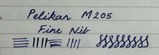 Pelikan M205
Fine Nib